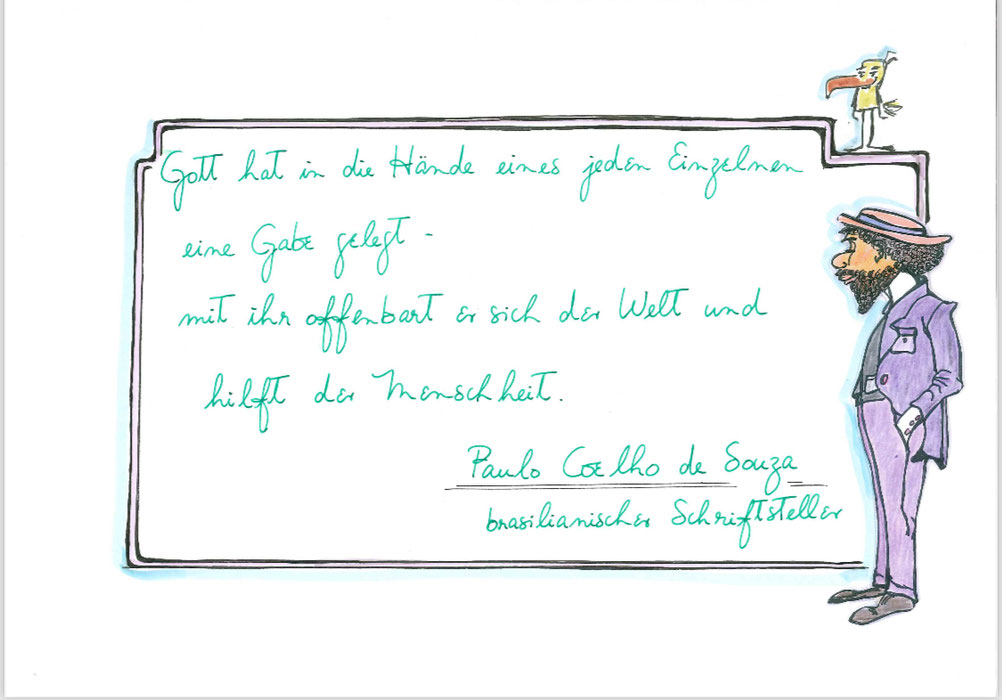 Gott hat in die Hände eines jeden Einzelnen
eine Gabe gelegt -
mit ihr offenbart er sich der Welt und
hilft der Menschheit.
Paulo Coelho de Souza
brasilianischer Schriftsteller